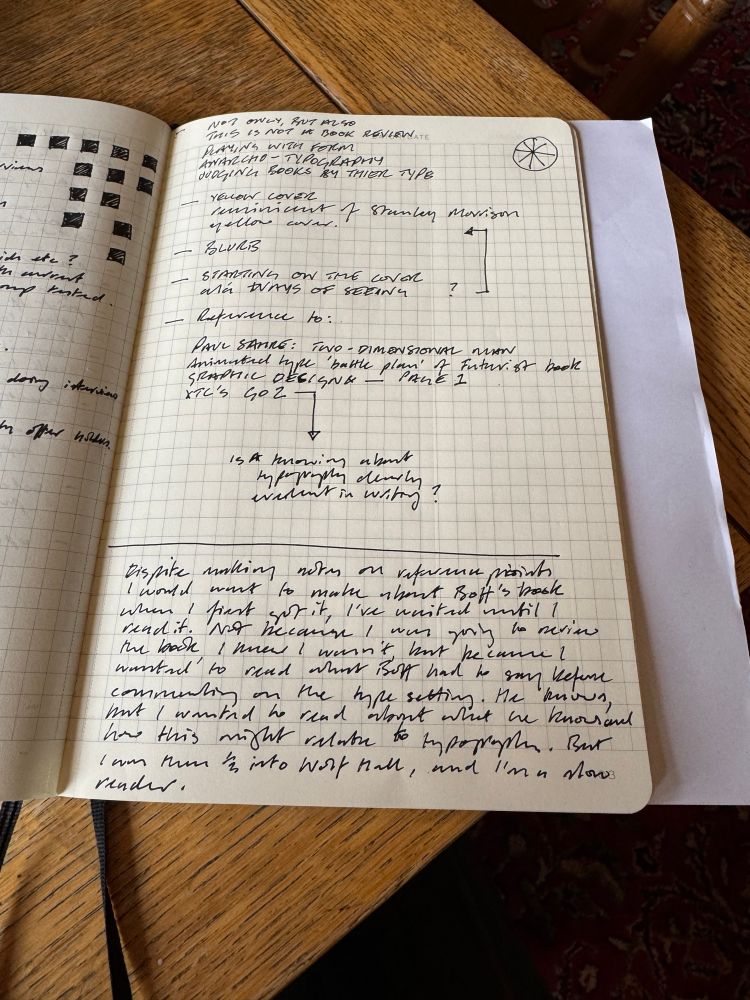 views
ids etc ?
th current
tested.
doing interviews
offer holders.
NOT ONLY, BUT ALSO
THIS IS NOT A BOOK REVIEW
PLAYING WITH FORM
ANARCHO-TYPOGRAPHY
JUDGING BOOKS BY THIER TYPE
— YELLOW COVER
reminincent of Stanley Morrison
yellow cover.
— BLURB
— STARTING ON THE COVER
ala WAYS OF SEEING ?
— Reference to:
PAUL SAHRE: TWO-DIMENSIONAL MAN
Animated type 'battle plan' of Futurist book
GRAPHIC DESIGN — PAGE 1
XTC'S GO2
is a knowing about
typography clearly
evident in writing ?
Dispite making notes on reference points
I would want to make about Boff's book
when I first got it, I've waited until I
read it. Not because I was going to review
the book, I knew I wasn't, but because I
wanted to read what Boff had to say before
commenting on the type setting. He knows,
but I wanted to read about what he knows and
how this might relate to typography. But
I was then ½ into Wolf Hall, and I'm a slow
reader.